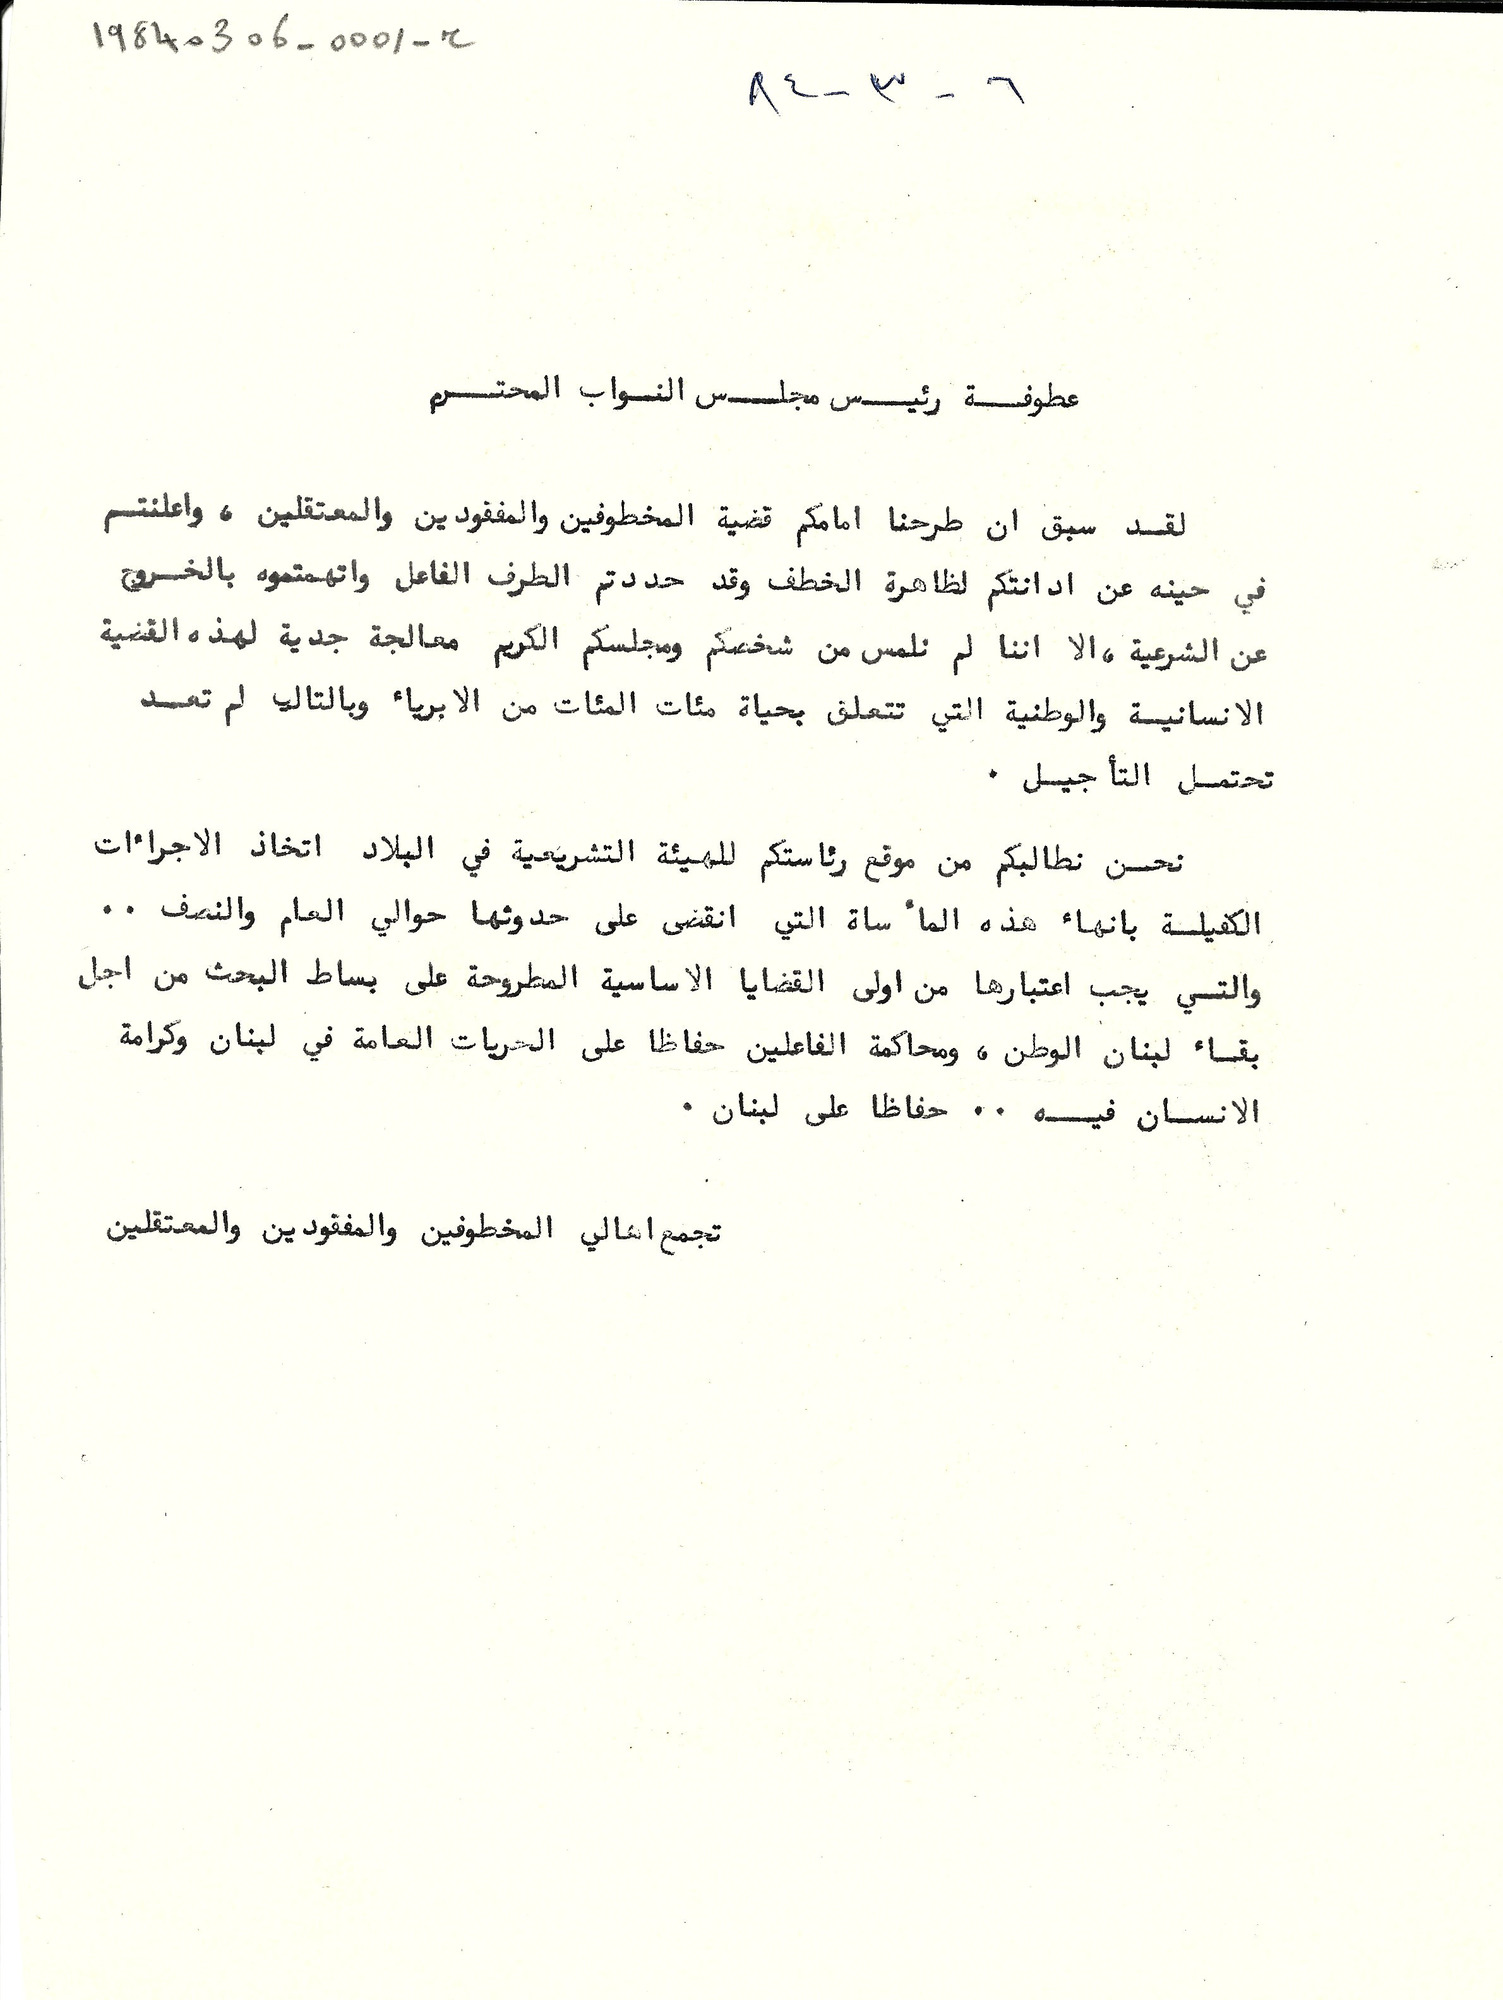 19840306-0001-ح
٨٤-٣-٦
عطوفة رئيس مجلس النواب المحترم
لقد سبق ان طرحنا امامكم قضية المخطوفين والمفقودين والمعتقلين ، واعلنتم
في حينه عن ادانتكم لظاهرة الخطف وقد حددتم الطرف الفاعل واتهمتموه بالخروج
عن الشرعية ، الا اننا لم نلمس من شخصكم ومجلسكم الكريم معالجة جدية لهذه القضية
الانسانية والوطنية التي تتعلق بحياة مئات المئات من الابرياء وبالتالي لم تعد
تحتمل التأجيل .
نحن نطالبكم من موقع رئاستكم للهيئة التشريعية في البلاد اتخاذ الاجراءات
الكفيلة بانهاء هذه المأساة التي انقضى على حدوثها حوالي العام والنصف ..
والتي يجب اعتبارها من اولى القضايا الاساسية المطروحة على بساط البحث من اجل
بقاء لبنان الوطن ، ومحاكمة الفاعلين حفاظا على الحريات العامة في لبنان وكرامة
الانسان فيه .. حفاظا على لبنان .
تجمع اهالي المخطوفين والمفقودين والمعتقلين